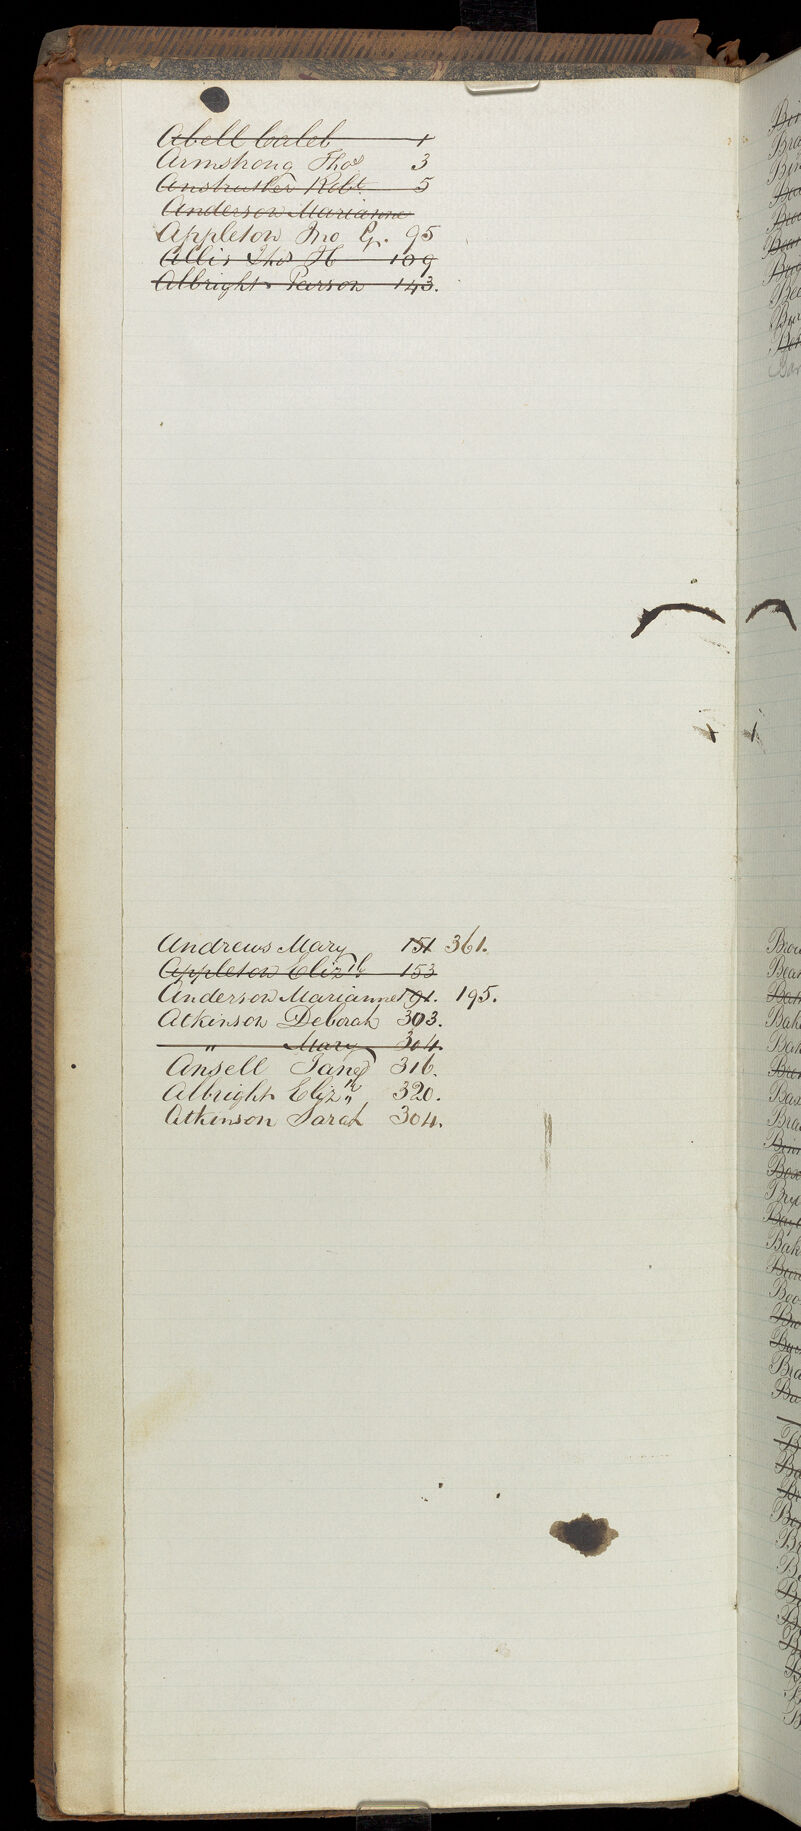 Abell Caleb 1
Armstrong Thos 3
Anstruther Robt 5
Anderson Marianne
Appleton Jno G. 95
Allis Thos H 109
Albright Parson 143.
Andrews Mary 151 361.
Appleton Elizth 153
Anderson Marianne 191. 195.
Atkinson Deborah 303.
" Mary 304.
Ansell Jane 316.
Albright Elizth 320.
Atkinson Sarah 304.